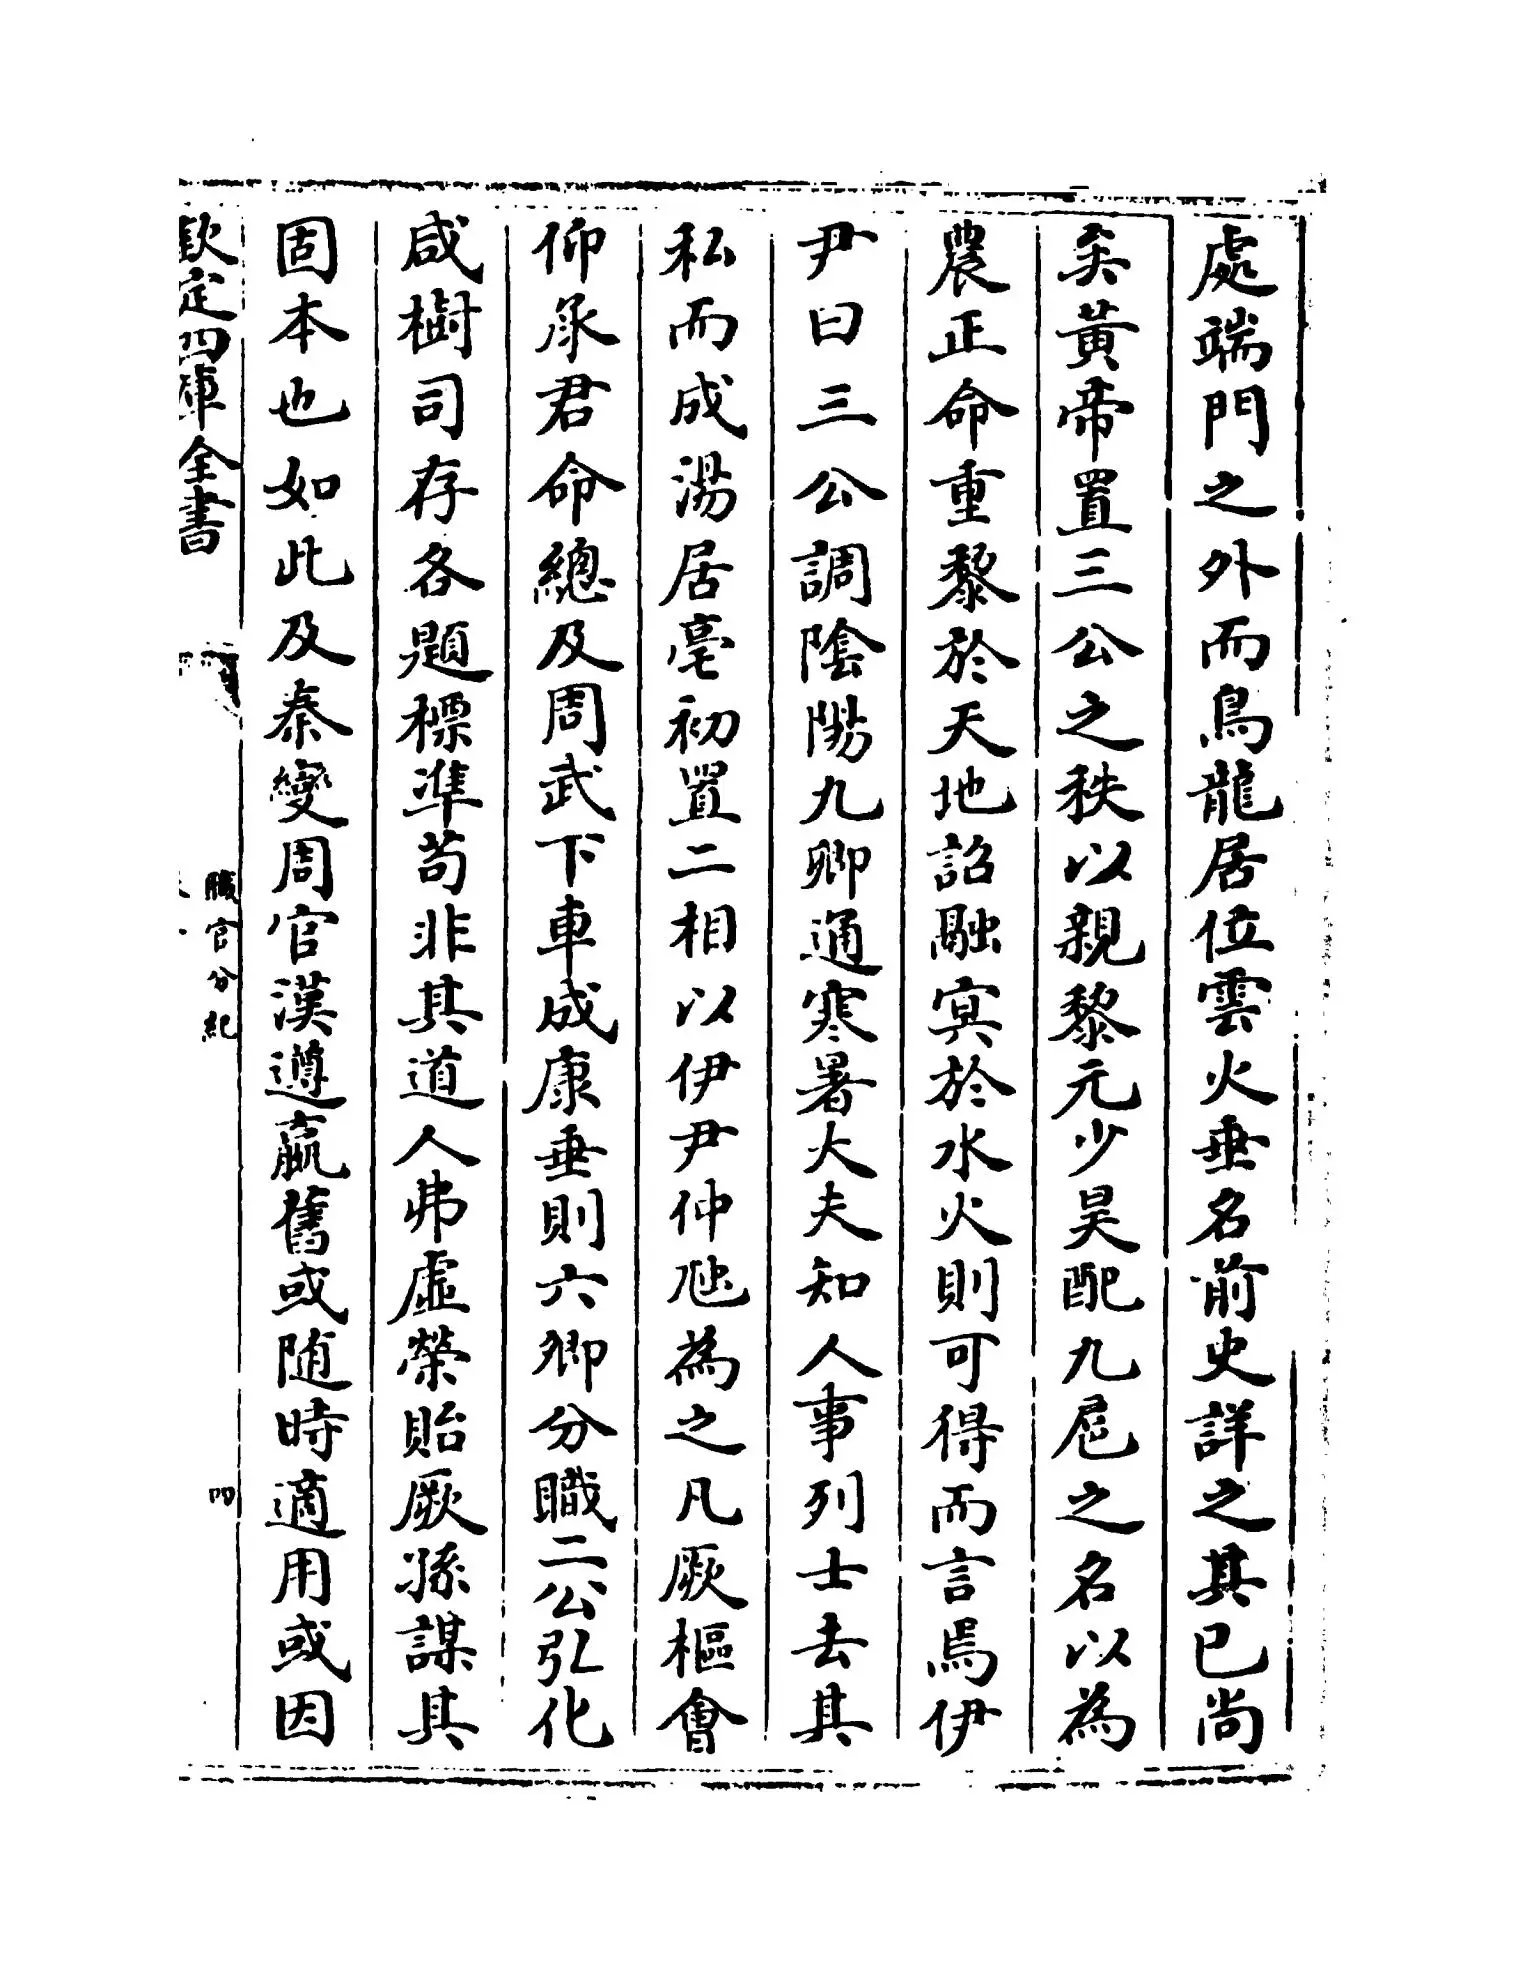 處端門之外而鳥龍居位雲火垂名前史詳之其已尚
矣黃帝置三公之秩以親黎元少昊配九扈之名以為
農正命重黎於天地詔融冥於水火則可得而言焉伊
尹曰三公調陰陽九卿通寒暑大夫知人事列士去其
私而成湯居亳初置二相以伊尹仲虺為之凡厥樞會
仰承君命總及周武下車成康垂則六卿分職二公弘化
咸樹司存各題標準苟非其道人弗虛榮貽厥孫謀其
固本也如此及秦變周官漢遵嬴舊或随時適用或因
欽定四庫全書
職官分紀
四